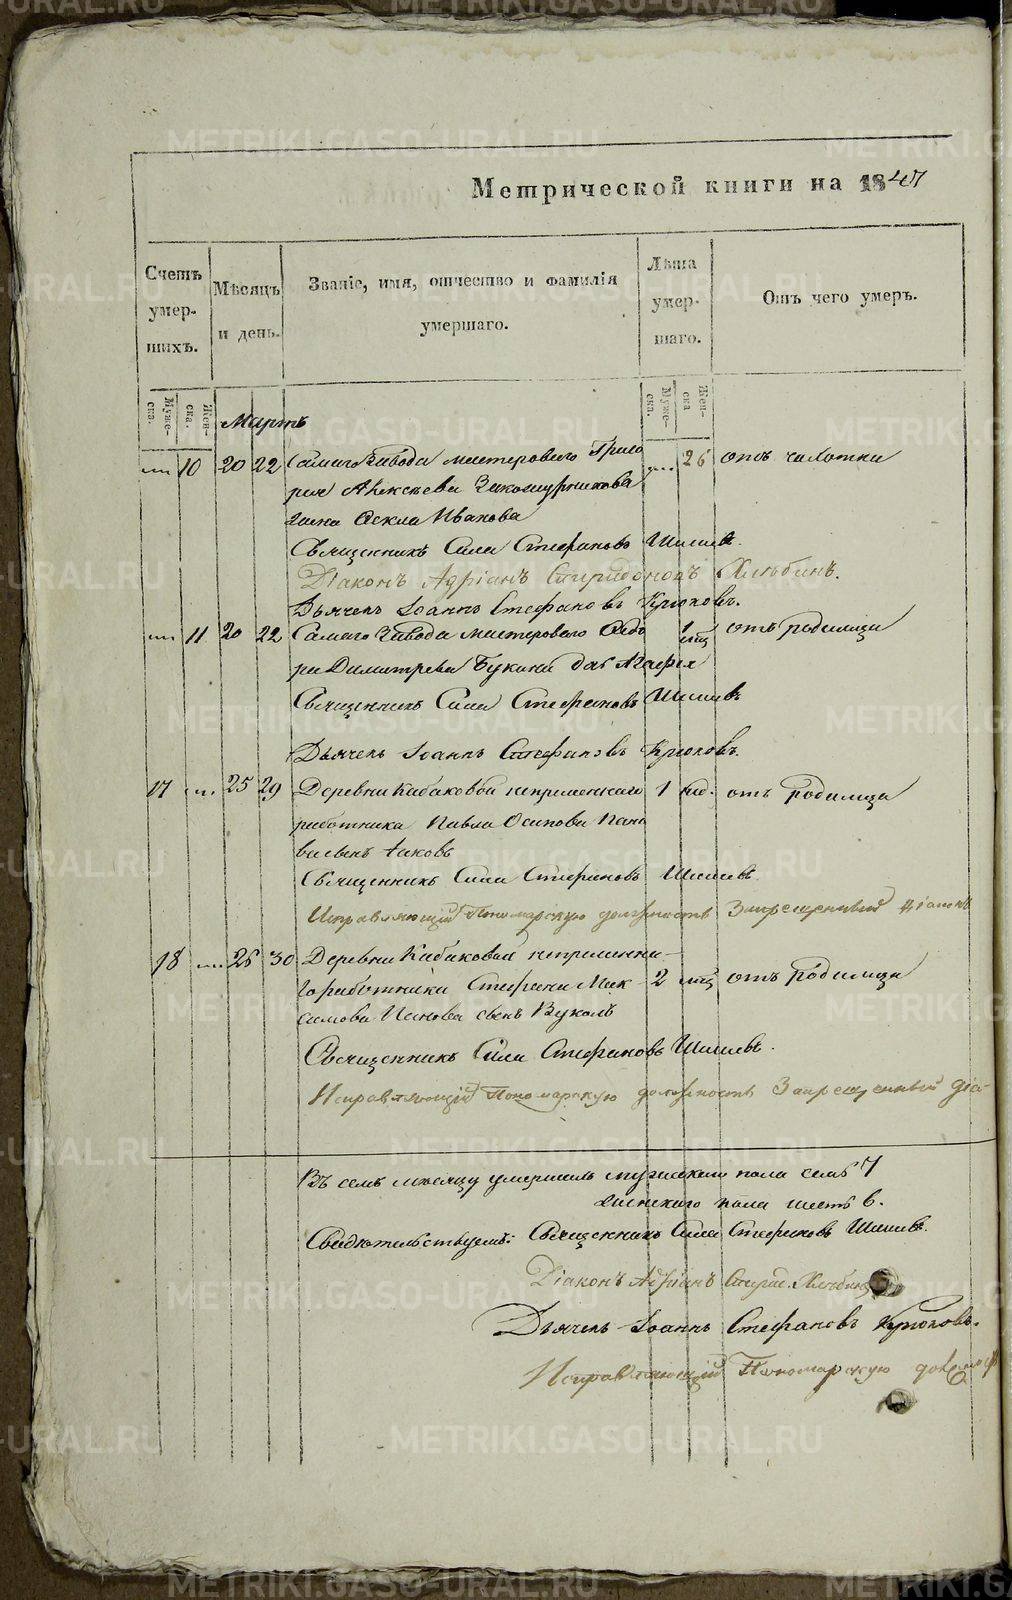 Метрической книги на 1847
Счетъ умер- шихъ.
Мѣсяцъ и день.
Званіе, имя, отчество и фамилія умершаго.
Лѣта умер- шаго.
Отъ чего умеръ.
Муже- ска. Жен- ска. Муже- ска. Жен- ска
Мартъ
10 20 22 Самаго Завода мастероваго Григо 26 отъ чахотки
рія Алексѣева
жена Фекла Иванова
Священникъ Сила Стефановъ Шишевъ.
Діаконъ Адріанъ Спиридоновъ Хлѣбинъ.
Дьячекъ Іоаннъ Стефановъ Крюковъ.
11 20 22 Самаго Завода мастероваго Федо 1 мѣц отъ родимца
ра Димитрева Букина дочь Агафія
Священникъ Сила Стефановъ Шишевъ
Дьячекъ Іоаннъ Стефановъ Крюковъ.
17 25 29 Деревни Кабаковой непременнаго 1 отъ родимца
работника Павла Осипова Пано
ва сынъ Іаковъ
Священникъ Сила Стефановъ Шишевъ
Исправляющій Пономарскую должность Запрещенный діаконъ
18 26 30 Деревни Кабаковой непременна-
го работника Стефана Мак- 2 мѣц отъ родимца
симова Панова сынъ Вуколъ
Священникъ Сила Стефановъ Шишевъ.
Исправляющій Пономарскую должность Запрещенный діа-
Въ семъ мѣсяцу умершихъ мужескаго пола семь 7
женскаго пола шесть 6.
Свидѣтельствуемъ: Священникъ Сила Стефановъ Шишевъ.
Діаконъ Адріанъ Спирид. Хлѣбинъ
Дьячекъ Іоаннъ Стефановъ Крюковъ.
Исправляющій Пономарскую должность
METRIKI.GASO-URAL.RU